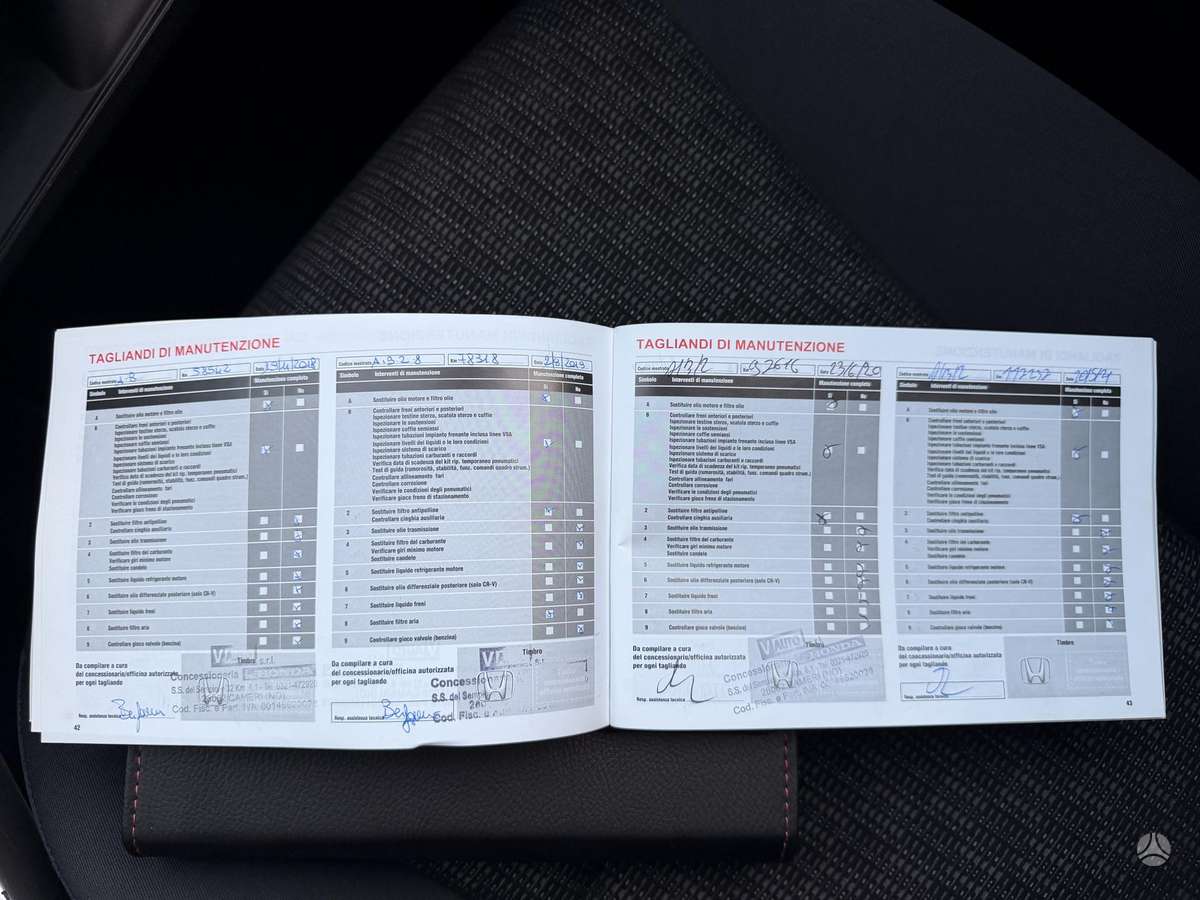 TAGLIANDI DI MANUTENZIONE
Codice mostrato A-B Km 58542 Data 19/4/2018
Simbolo Interventi di manutenzione Manutenzione completa
Sì No
A Sostituire olio motore e filtro olio
B Controllare freni anteriori e posteriori
Ispezionare testine sterzo, scatola sterzo e cuffie
Ispezionare le sostensioni
Ispezionare cuffie semiassi
Ispezionare tubazioni impianto frenante inclusa linee VSA
Ispezionare livelli dei liquidi e le loro condizioni
Ispezionare sistema di scarico
Ispezionare tubazioni carburanti e raccordi
Verifica data di scadenza del kit rip. temporaneo pneumatici
Test di guida (rumorosità, stabilità, funz. comandi quadro strum.)
Controllare allineamento fari
Controllare corrosione
Verificare le condizioni degli pneumatici
Verificare gioco freno di stazionamento
2 Sostituire filtro antipolline
Controllare cinghia ausiliaria
3 Sostituire olio trasmissione
4 Sostituire filtro del carburante
Verificare giri minimo motore
Sostituire candele
5 Sostituire liquido refrigerante motore
6 Sostituire olio differenziale posteriore (solo CR-V)
7 Sostituire liquido freni
8 Sostituire filtro aria
9 Controllare gioco valvole (benzina)
Da compilare a cura
del concessionario/officina autorizzata
per ogni tagliando
Timbro
Concessionaria
Resp. assistenza tecnica
42
Codice mostrato A.9.2.8 Km 78318 Data 2/9/2019
Simbolo Interventi di manutenzione Manutenzione completa
Sì No
A Sostituire olio motore e filtro olio
B Controllare freni anteriori e posteriori
Ispezionare testine sterzo, scatola sterzo e cuffie
Ispezionare le sostensioni
Ispezionare cuffie semiassi
Ispezionare tubazioni impianto frenante inclusa linee VSA
Ispezionare livelli dei liquidi e le loro condizioni
Ispezionare sistema di scarico
Ispezionare tubazioni carburanti e raccordi
Verifica data di scadenza del kit rip. temporaneo pneumatici
Test di guida (rumorosità, stabilità, funz. comandi quadro strum.)
Controllare allineamento fari
Controllare corrosione
Verificare le condizioni degli pneumatici
Verificare gioco freno di stazionamento
2 Sostituire filtro antipolline
Controllare cinghia ausiliaria
3 Sostituire olio trasmissione
4 Sostituire filtro del carburante
Verificare giri minimo motore
Sostituire candele
5 Sostituire liquido refrigerante motore
6 Sostituire olio differenziale posteriore (solo CR-V)
7 Sostituire liquido freni
8 Sostituire filtro aria
9 Controllare gioco valvole (benzina)
Da compilare a cura
del concessionario/officina autorizzata
per ogni tagliando
Timbro
Resp. assistenza tecnica
TAGLIANDI DI MANUTENZIONE
Codice mostrato Km 92616 Data 23/6/20
Simbolo Interventi di manutenzione Manutenzione completa
Sì No
A Sostituire olio motore e filtro olio
B Controllare freni anteriori e posteriori
Ispezionare testine sterzo, scatola sterzo e cuffie
Ispezionare le sostensioni
Ispezionare cuffie semiassi
Ispezionare tubazioni impianto frenante inclusa linee VSA
Ispezionare livelli dei liquidi e le loro condizioni
Ispezionare sistema di scarico
Ispezionare tubazioni carburanti e raccordi
Verifica data di scadenza del kit rip. temporaneo pneumatici
Test di guida (rumorosità, stabilità, funz. comandi quadro strum.)
Controllare allineamento fari
Controllare corrosione
Verificare le condizioni degli pneumatici
Verificare gioco freno di stazionamento
2 Sostituire filtro antipolline
Controllare cinghia ausiliaria
3 Sostituire olio trasmissione
4 Sostituire filtro del carburante
Verificare giri minimo motore
Sostituire candele
5 Sostituire liquido refrigerante motore
6 Sostituire olio differenziale posteriore (solo CR-V)
7 Sostituire liquido freni
8 Sostituire filtro aria
9 Controllare gioco valvole (benzina)
Da compilare a cura
del concessionario/officina autorizzata
per ogni tagliando
Resp. assistenza tecnica
Codice mostrato Km Data
Simbolo Interventi di manutenzione Manutenzione completa
Sì No
A Sostituire olio motore e filtro olio
B Controllare freni anteriori e posteriori
Ispezionare testine sterzo, scatola sterzo e cuffie
Ispezionare le sostensioni
Ispezionare cuffie semiassi
Ispezionare tubazioni impianto frenante inclusa linee VSA
Ispezionare livelli dei liquidi e le loro condizioni
Ispezionare sistema di scarico
Ispezionare tubazioni carburanti e raccordi
Verifica data di scadenza del kit rip. temporaneo pneumatici
Test di guida (rumorosità, stabilità, funz. comandi quadro strum.)
Controllare allineamento fari
Controllare corrosione
Verificare le condizioni degli pneumatici
Verificare gioco freno di stazionamento
2 Sostituire filtro antipolline
Controllare cinghia ausiliaria
3 Sostituire olio trasmissione
4 Sostituire filtro del carburante
Verificare giri minimo motore
Sostituire candele
5 Sostituire liquido refrigerante motore
6 Sostituire olio differenziale posteriore (solo CR-V)
7 Sostituire liquido freni
8 Sostituire filtro aria
9 Controllare gioco valvole (benzina)
Da compilare a cura
del concessionario/officina autorizzata
per ogni tagliando
Timbro
Resp. assistenza tecnica
43